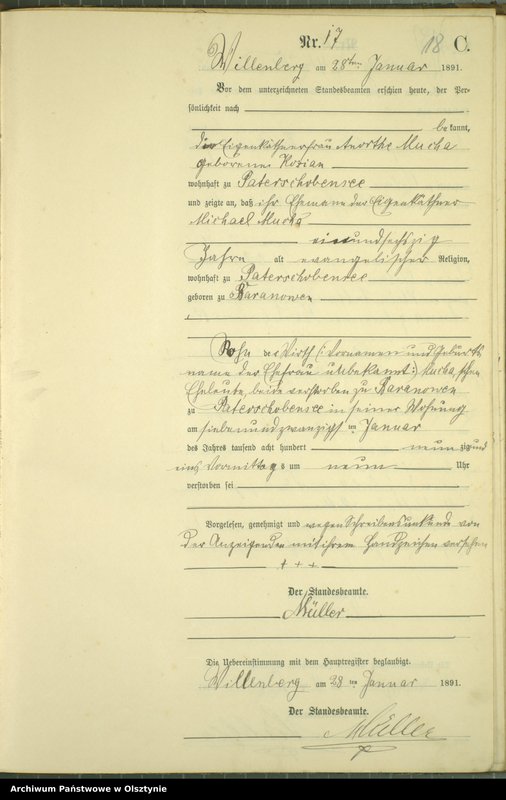 Nr. 17
18 C.
Willenberg am 28ten Januar 1891.
Vor dem unterzeichneten Standesbeamten erschien heute, der Per-
sönlichkeit nach
bekannt,
die Eigenkäthnerfrau Anorthe Mucha
geborene Kozian
wohnhaft zu Paterschobensee
und zeigte an, daß ihr Ehemann der Eigenkäthner
Michael Mucha
einundsechszig
Jahre alt evangelischer Religion,
wohnhaft zu Paterschobensee
geboren zu Baranowen
Sohn der Wirth (: Vornamen und Geburts
name der Ehefrau unbekannt :) Mucha'schen
Eheleute, beide verstorben zu Baranowen
zu Paterschobensee in seiner Wohnung
am siebenundzwanzigsten Januar
des Jahres tausend acht hundert neunzig und
eins Vormittags um neun Uhr
verstorben sei
Vorgelesen, genehmigt und wegen Schreibensunkunde von
der Anzeigenden mit ihrem Handzeichen versehen
+ + +
Der Standesbeamte.
Müller
Die Uebereinstimmung mit dem Hauptregister beglaubigt.
Willenberg am 28ten Januar 1891.
Der Standesbeamte.
Müller
Archiwum Państwowe w Olsztynie